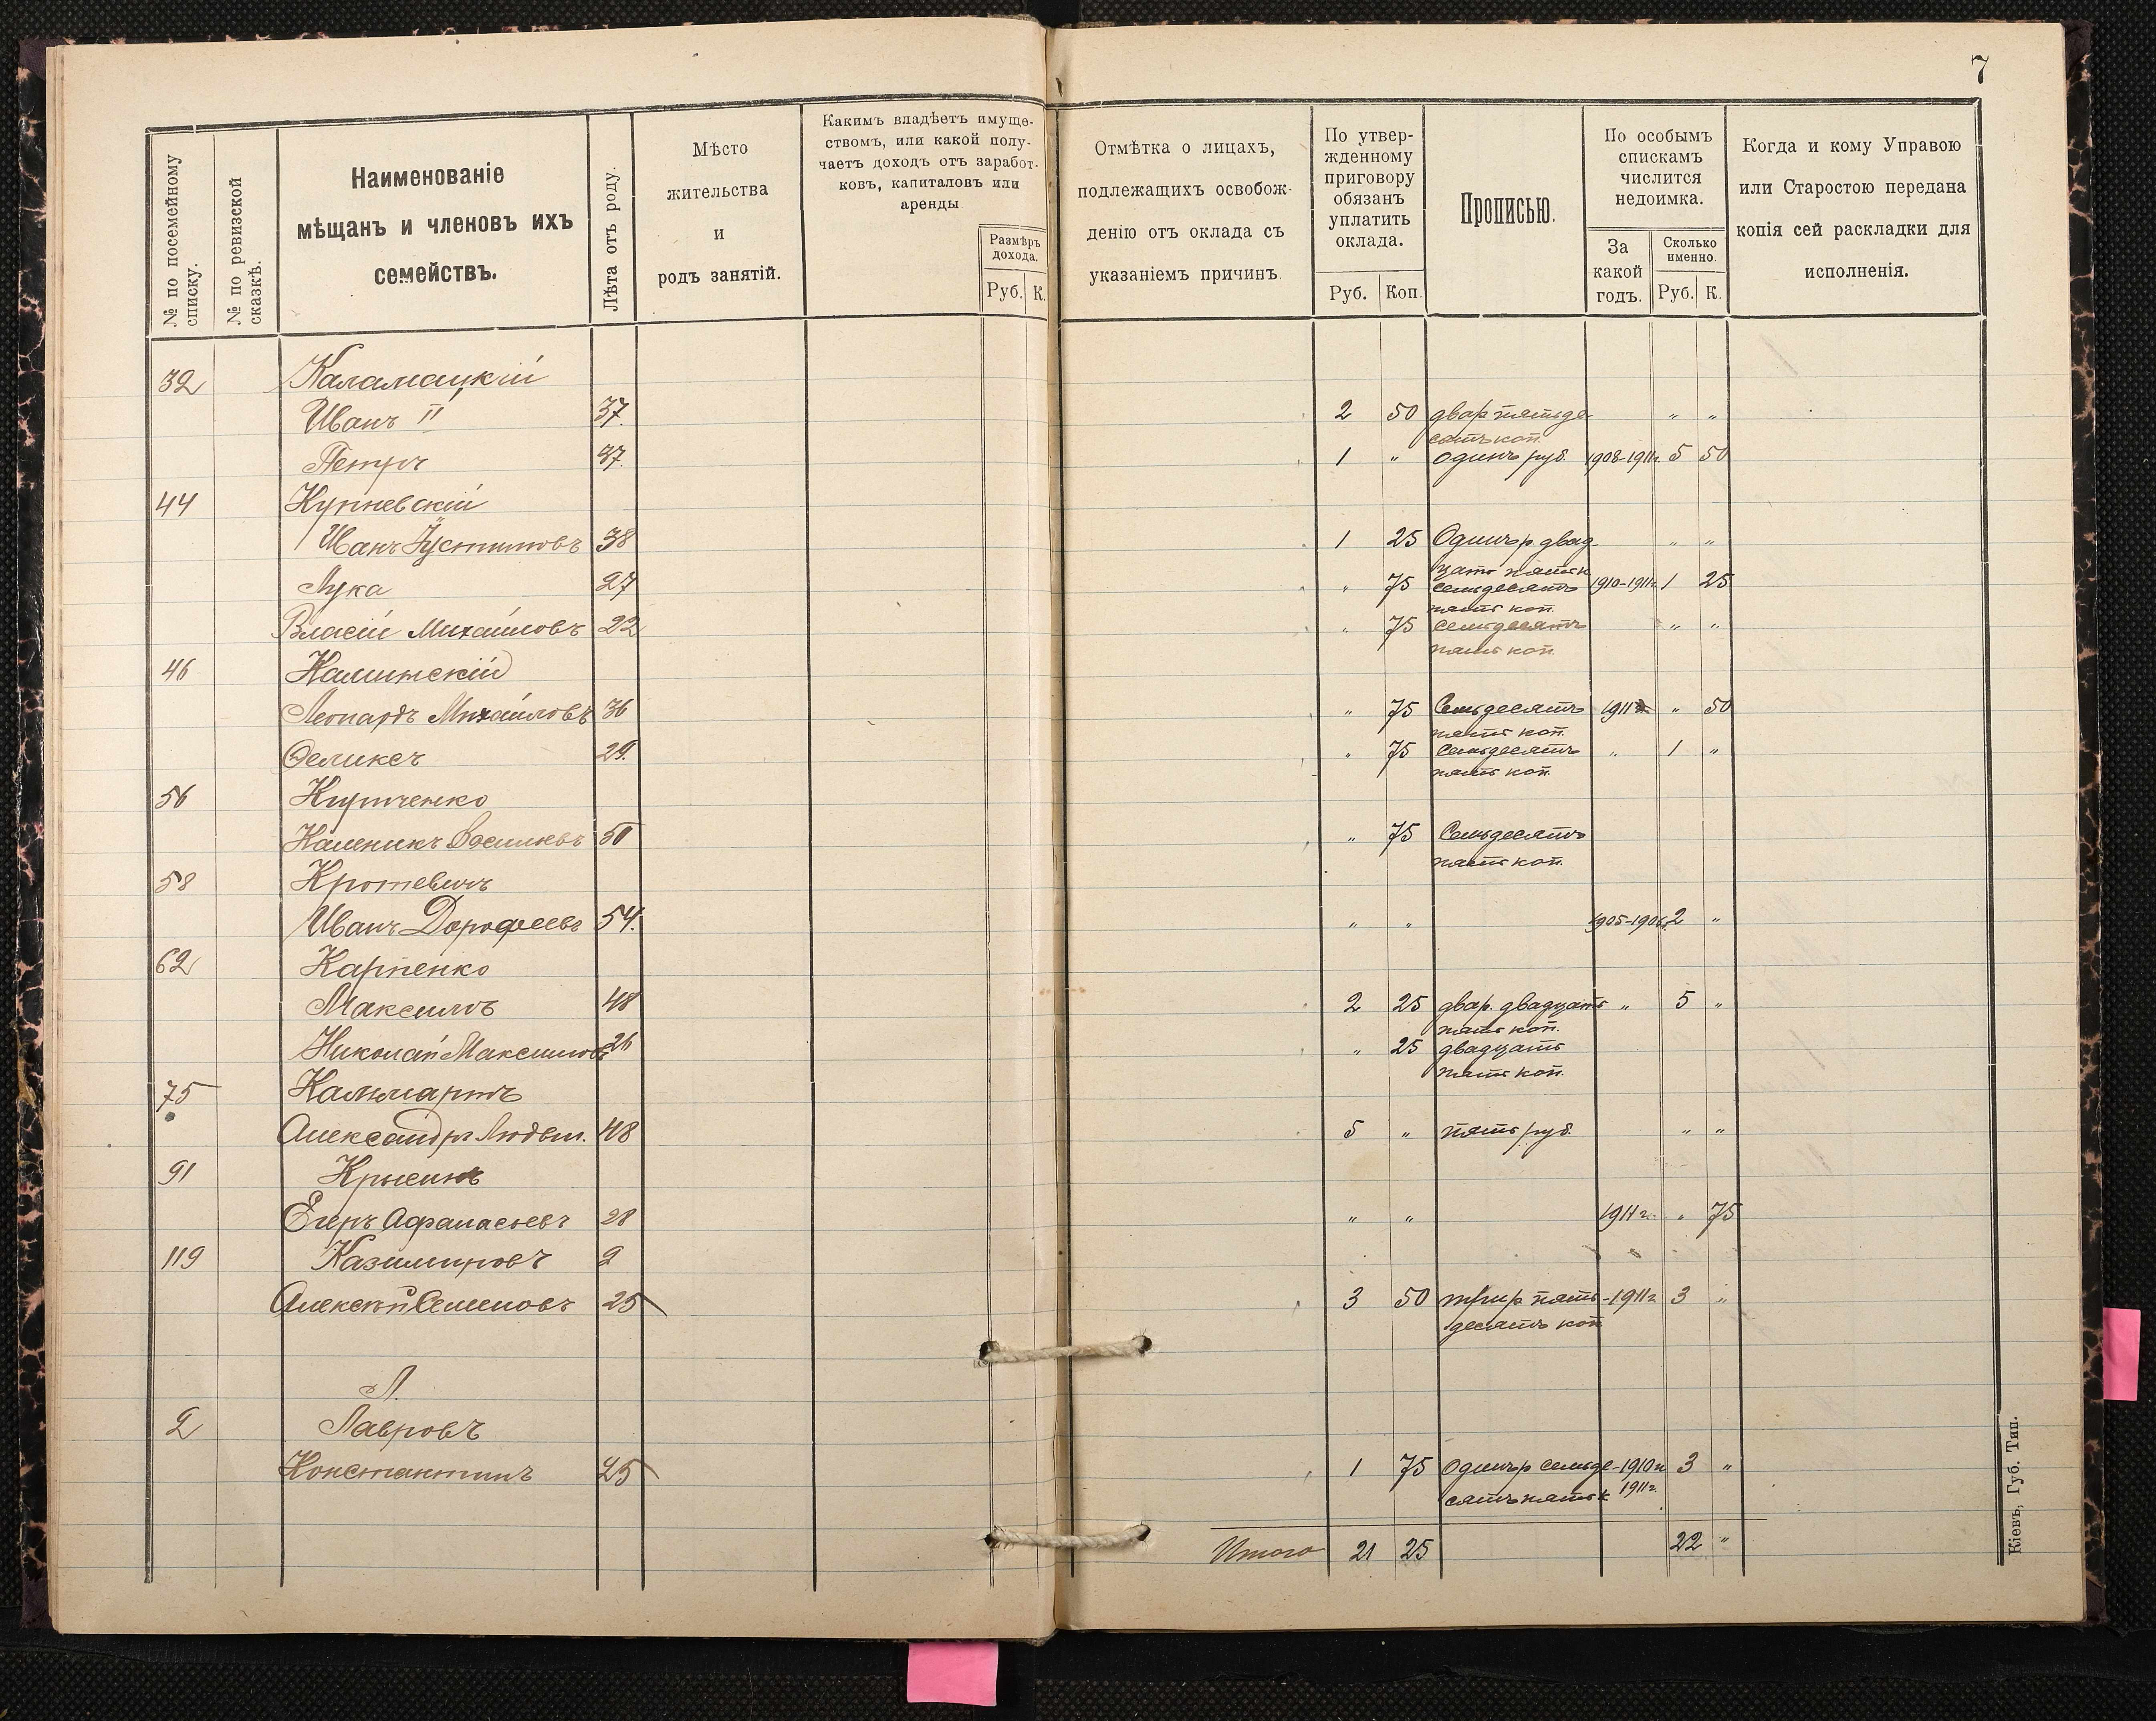 7
№ по посемейному списку.
№ по ревизской сказкѣ.
Наименованіе
мѣщанъ и членовъ ихъ
семействъ.
Лѣта отъ роду.
Мѣсто
жительства
и
родъ занятій.
Какимъ владѣетъ имуще-
ствомъ, или какой полу-
чаетъ доходъ отъ заработ-
ковъ, капиталовъ или
аренды.
Размѣръ
дохода.
Руб. К.
Отмѣтка о лицахъ,
подлежащихъ освобож-
денію отъ оклада съ
указаніемъ причинъ.
По утвер-
жденному
приговору
обязанъ
уплатить
оклада.
Руб. Коп.
Прописью.
По особымъ
спискамъ
числится
недоимка.
За
какой
годъ.
Сколько
именно.
Руб. К.
Когда и кому Управою
или Старостою передана
копія сей раскладки для
исполненія.
32 Каламацкій
Иванъ II 37. 2 50 два р пятьде " "
сятъ коп.
Петръ 37. 1 " одинъ руб. 1908-1911г. 5 50
44
Иванъ Устимовъ 38 1 25 Одинъ р. двад " "
цать пять к
Лука 27 " 75 семьдесятъ 1910-1911г. 1 25
пять коп.
Власій Михайловъ 22 " 75 семьдесятъ " "
пять коп.
46 Калинскій
Леонардъ Михайловъ 36 " 75 Семьдесятъ 1911 " 50
пять коп.
Феликсъ 29. " 75 Семьдесятъ " 1 "
пять коп.
56
Каленикъ 50 " 75 Семьдесятъ
пять коп.
58 Кротевичъ
Иванъ Дорофеевъ 54. " " 1905-1906г. 2 "
62 Карпенко
Максимъ 48 2 25 два р. двадцать " 5 "
пять коп.
Николай Максимовъ 26 " 25 двадцать
пять коп.
75
Александръ Людвиг. 48 5 " пять руб. " "
91
Егоръ Афанасьевъ 28 " " 1911г. " 75
119 Казимировъ 2
Алексѣй Семеновъ 25 3 50 три р пять- 1911г 3 "
десятъ коп
Л.
2 Лавровъ
Константинъ 25 1 75 Одинъ р семьде- 1910г 3 "
сятъ пять к 1911г.
Итого 21 25 22 "
Кіевъ, Губ. Тип.